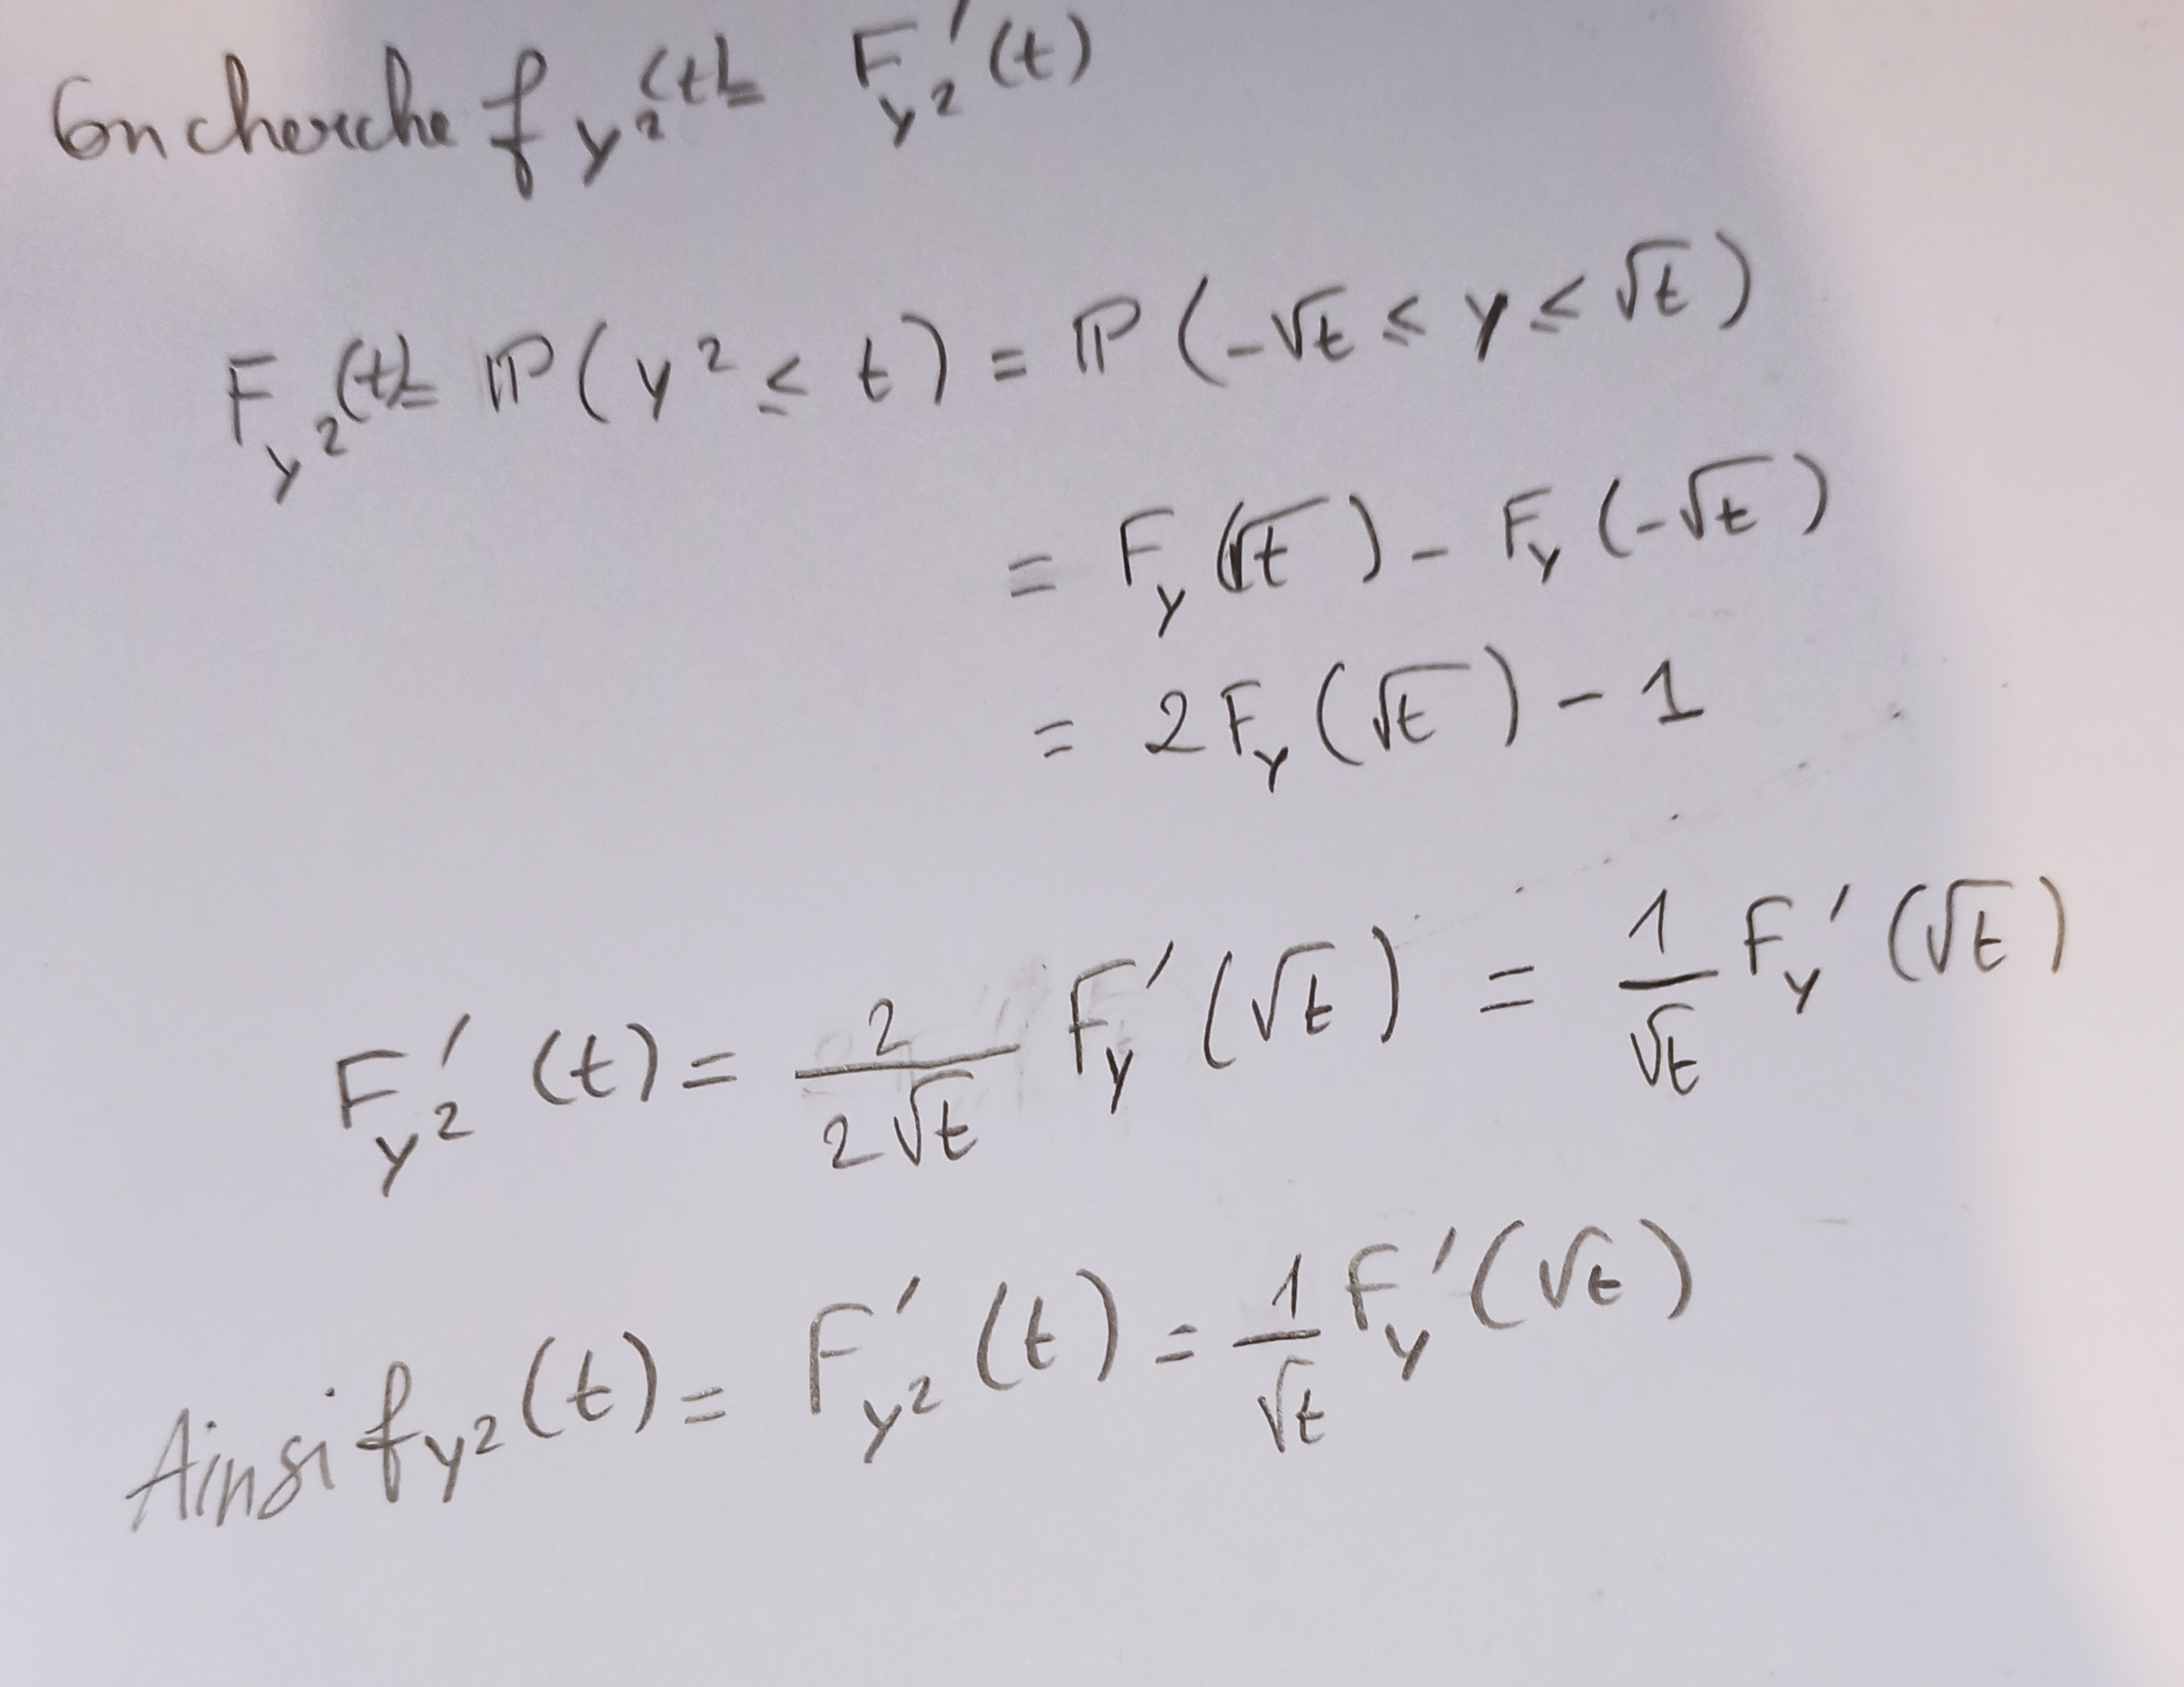 On cherche f_{Y²}(t) = F'_{Y²}(t)
F_{Y²}(t) = ℙ(Y² ≤ t) = ℙ(-√t ≤ Y ≤ √t)
= F_Y(√t) - F_Y(-√t)
= 2F_Y(√t) - 1
F'_{Y²}(t) = \frac{2}{2√t} F'_Y(√t) = \frac{1}{√t} F'_Y(√t)
Ainsi f_{Y²}(t) = F'_{Y²}(t) = \frac{1}{√t} F'_Y(√t)